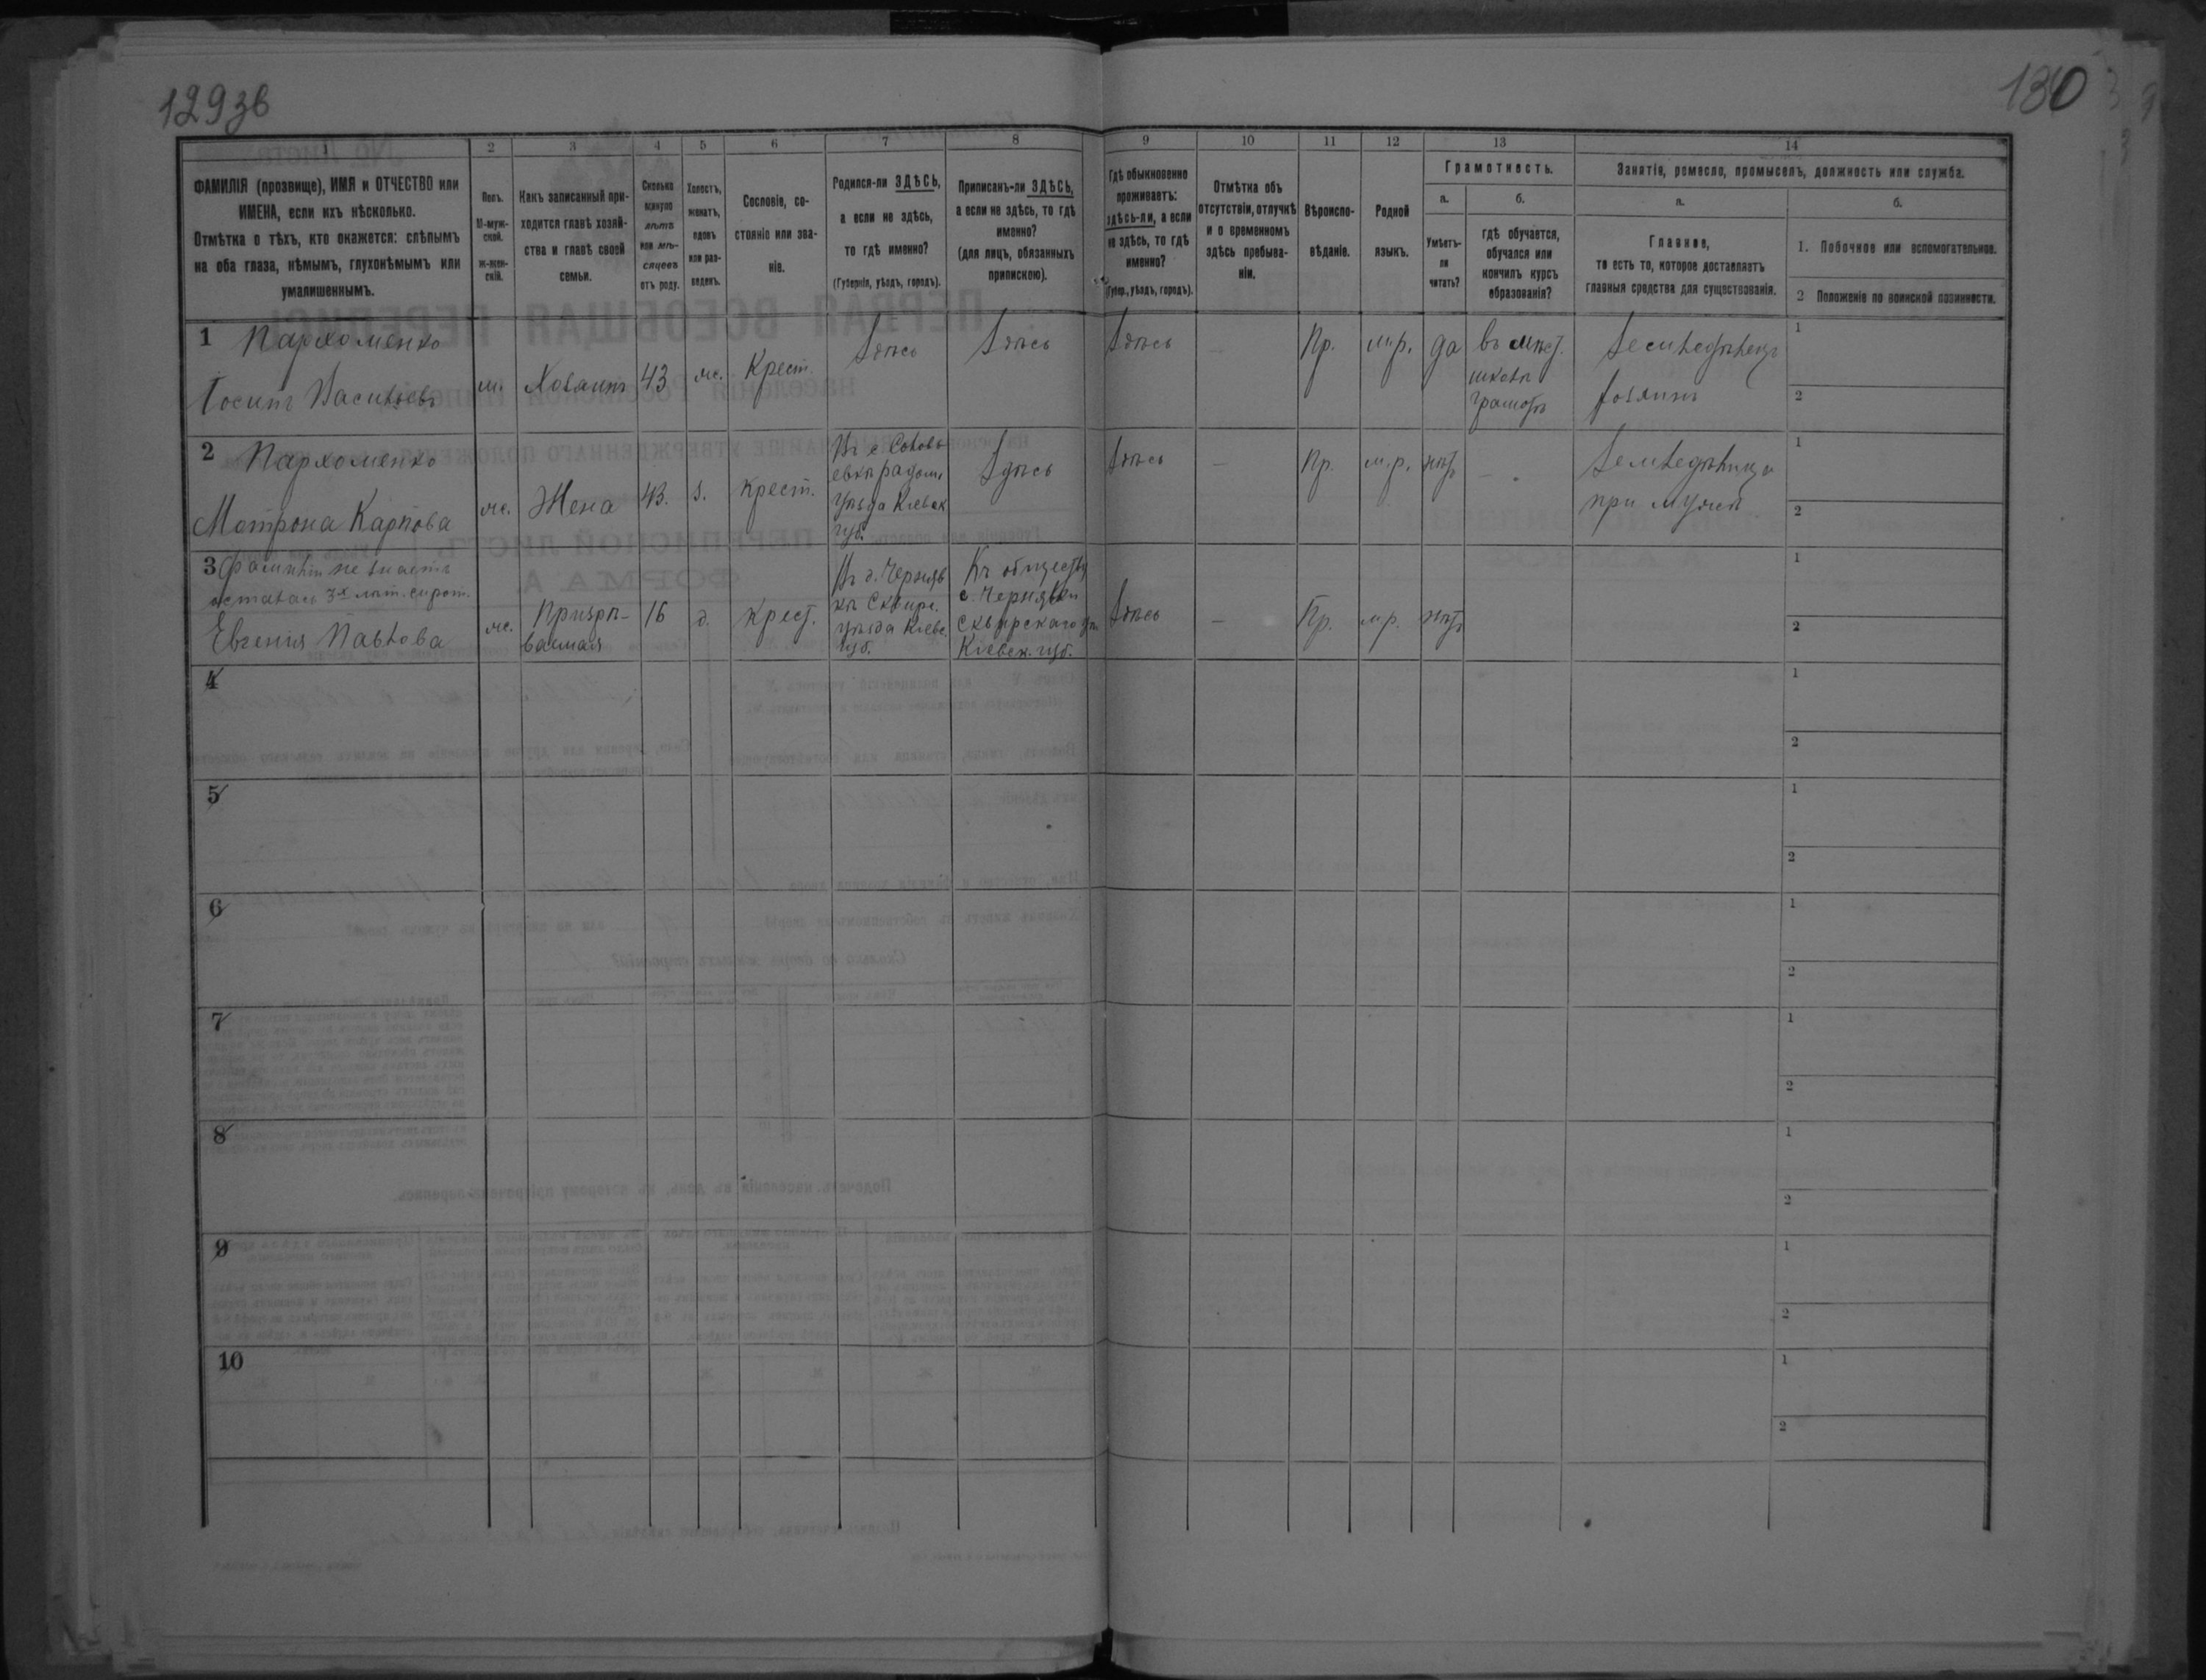 129зв
130
1 2 3 4 5 6 7 8 9 10 11 12 13 14
ФАМИЛІЯ (прозвище), ИМЯ и ОТЧЕСТВО или
ИМЕНА, если ихъ нѣсколько.
Отмѣтка о тѣхъ, кто окажется: слѣпымъ
на оба глаза, нѣмымъ, глухонѣмымъ или
умалишеннымъ.
Полъ.
М-муж-
ской.
ж-жен-
скій.
Какъ записанный при-
ходится главѣ хозяй-
ства и главѣ своей
семьи.
Сколько
минуло
лѣтъ
или мѣ-
сяцевъ
отъ роду.
Холостъ,
женатъ,
вдовъ
или раз-
веденъ.
Сословіе, со-
стояніе или зва-
ніе.
Родился-ли ЗДѢСЬ,
а если не здѣсь,
то гдѣ именно?
(Губернія, уѣздъ, городъ).
Приписанъ-ли ЗДѢСЬ,
а если не здѣсь, то гдѣ
именно?
(для лицъ, обязанныхъ
припискою).
Гдѣ обыкновенно
проживаетъ:
здѣсь-ли, а если
не здѣсь, то гдѣ
именно?
(Губер., уѣздъ, городъ).
Отмѣтка объ
отсутствіи, отлучкѣ
и о временномъ
здѣсь пребыва-
ніи.
Вѣроиспо-
вѣданіе.
Родной
языкъ.
Грамотность.
а.
Умѣетъ-
ли
читать?
б.
гдѣ обучается,
обучался или
кончилъ курсъ
образованія?
Занятіе, ремесло, промыселъ, должность или служба.
а.
Главное,
то есть то, которое доставляетъ
главныя средства для существованія.
б.
1. Побочное или вспомогательное.
2 Положеніе по воинской повинности.
1 Пархоменко
Іосипъ Васильевъ
м.
Хозаинъ
43
ж.
Крест.
Здѣсь
Здѣсь
Здѣсь
—
Пр.
м.р.
да
въ мѣст.
школѣ
грамотѣ
Земледѣлецъ
хозяинъ
1
2
2 Пархоменко
Мотрона Карпова
ж.
Жена
43.
з.
крест.
Въ с. Соловь
евкѣ радом.
уѣзда Кіевск
губ.
Здѣсь
Здѣсь
—
Пр.
м.р.
нѣтъ
—
Земледѣлица
при мужѣ
1
2
3 Фамиліи не знаетъ
осталась 3х лѣт. сирот.
Евгенія Павлова
ж.
Призрѣ-
ваемая
16
д.
Крест.
Въ д. Черняв
кѣ Сквирс.
уѣзда Кіевс.
губ.
Къ обществу
с. Чернявки
Сквирскаго уѣ.
Кіевск. губ.
Здѣсь
—
Пр.
м.р.
нѣтъ
1
2
4
1
2
5
1
2
6
1
2
7
1
2
8
1
2
9
1
2
10
1
2